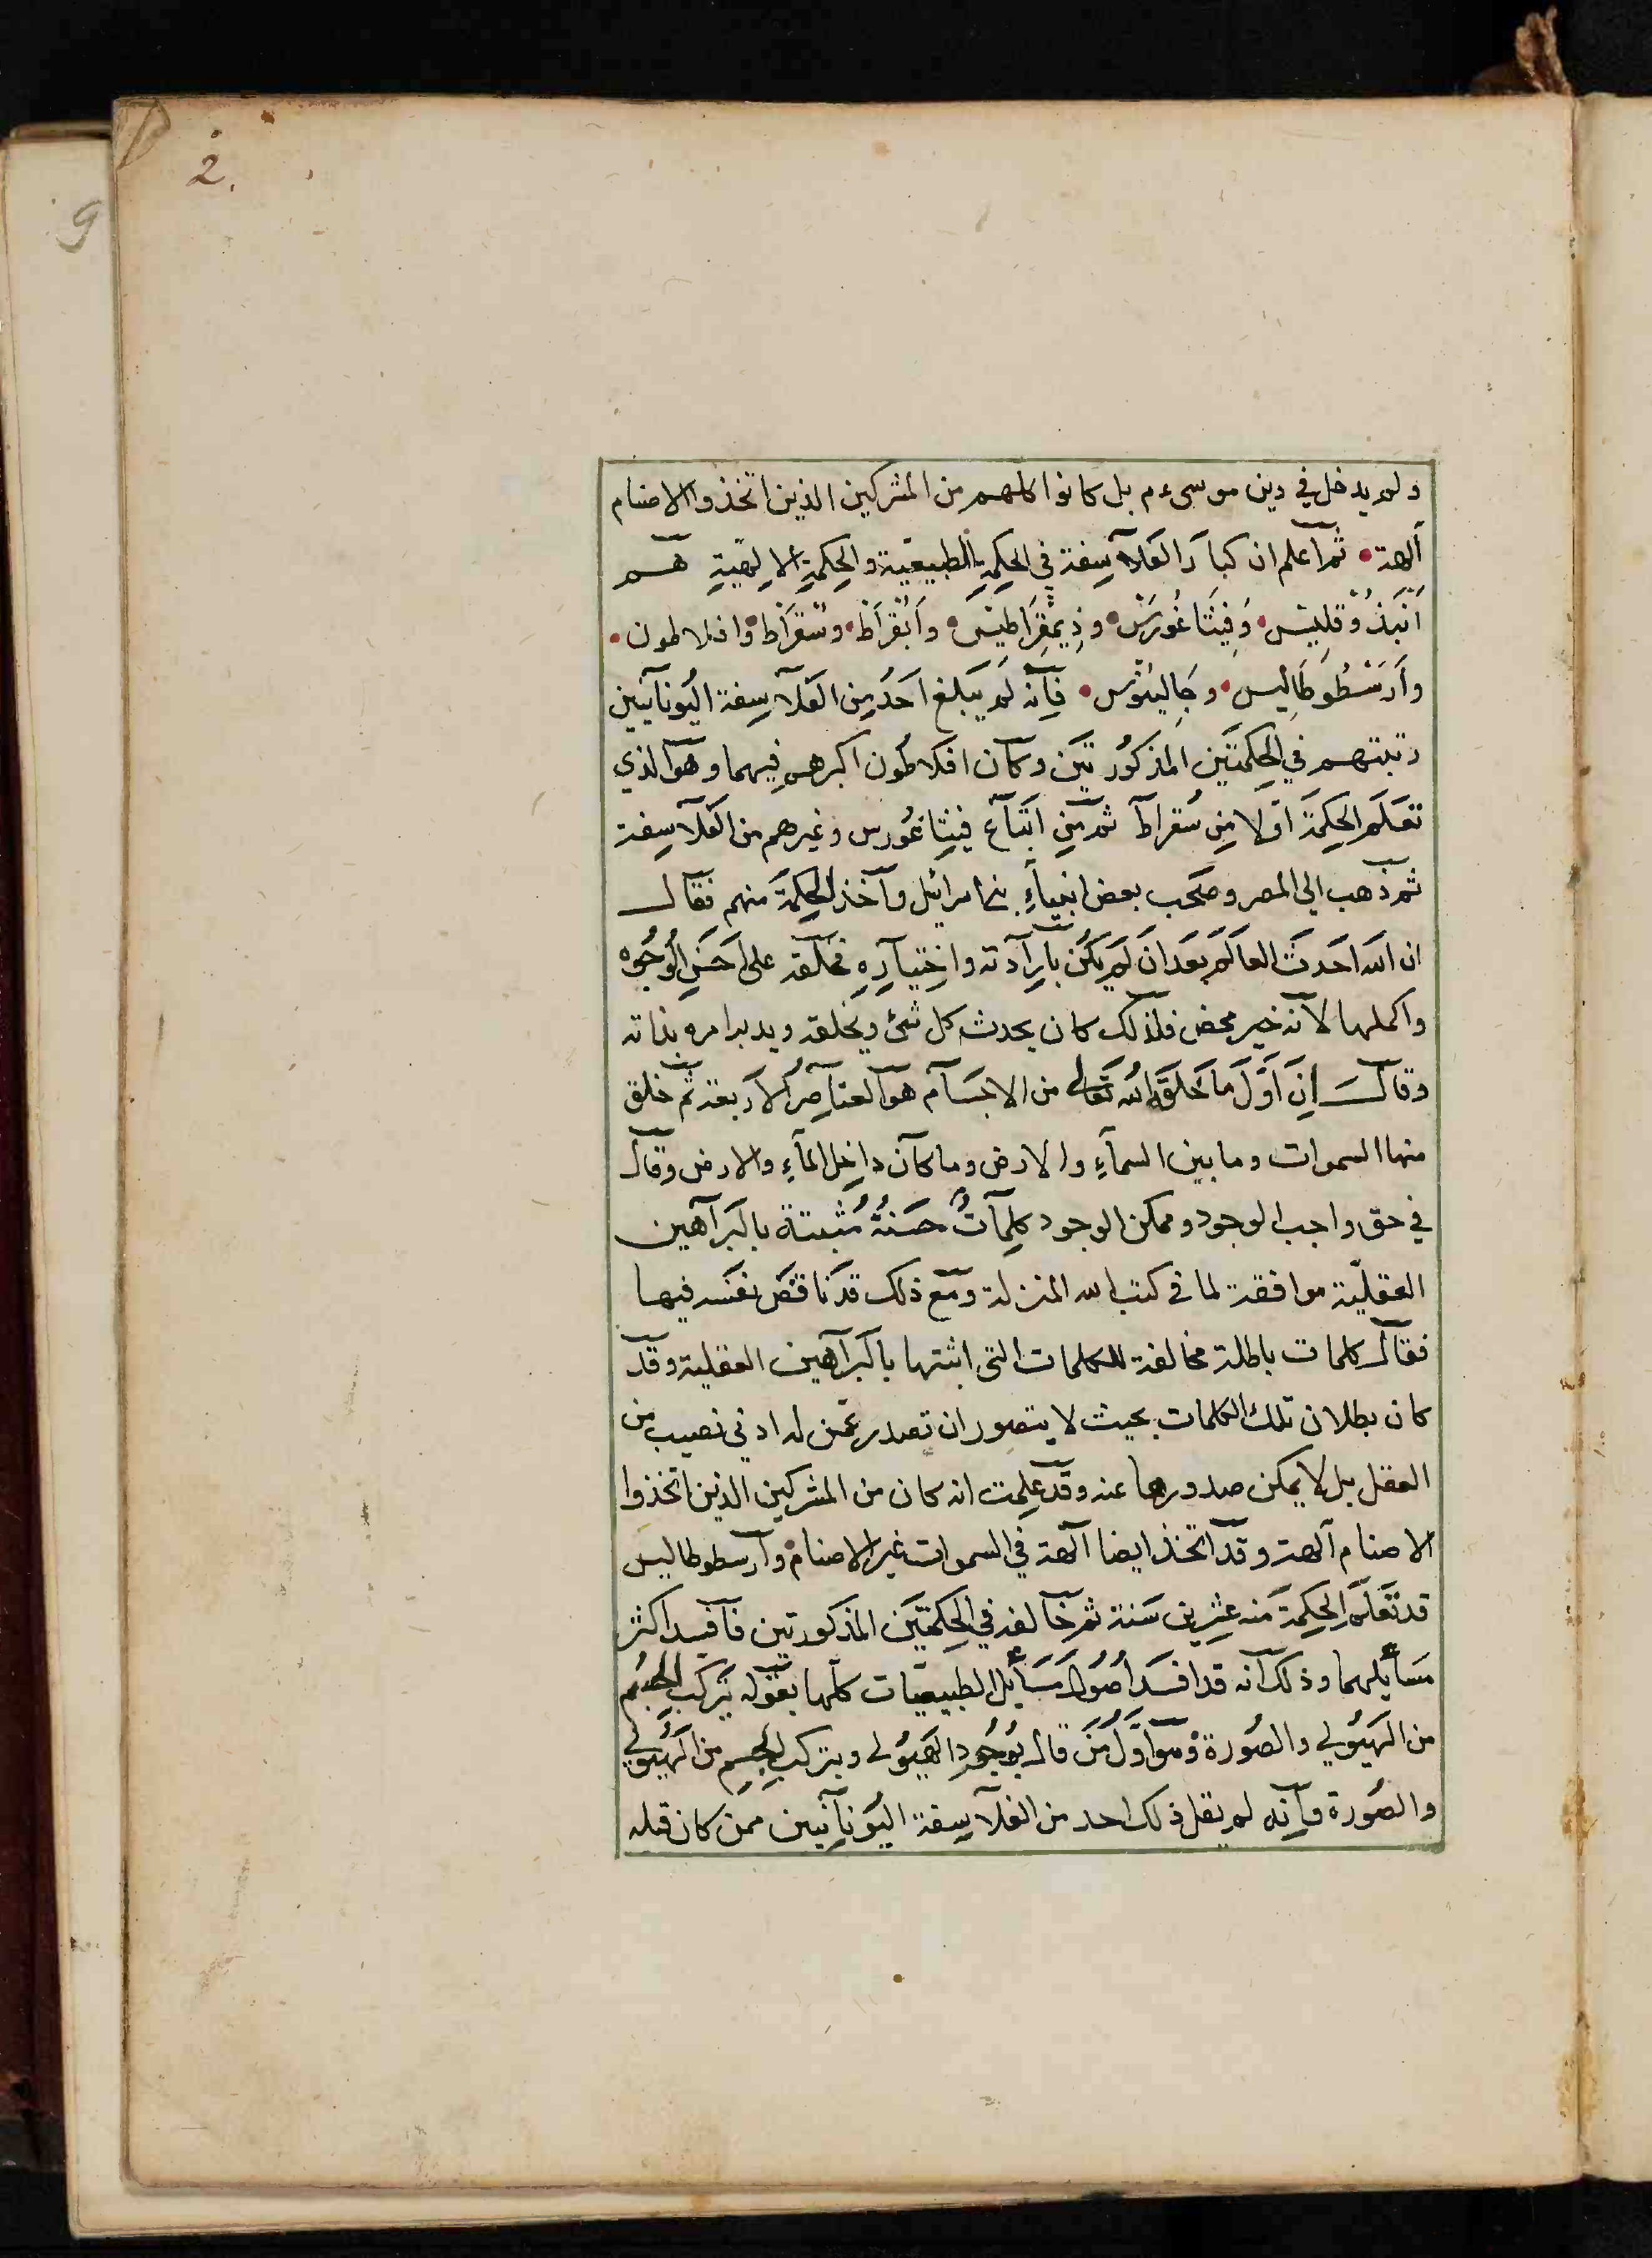 2.
ولم يدخل في دين موسى ء م بل كانوا كلهم من المشركين الذين اتخذوا الاصنام
آلهة • ثم اعلم ان كبار الفلاسفة في الحكمة الطبيعية والحكمة الالهية هم
انبذوقليس • وفيثاغورس • وذيمقراطيس • وابقراط • وسقراط • وافلاطون •
وارسطوطاليس • وجالينوس • فانه لم يبلغ احد من الفلاسفة اليونانيين
رتبتهم في الحكمتين المذكورتين وكان افلاطون اكبرهم فيهما وهو الذي
تعلم الحكمة اولا من سقراط ثم من اتباع فيثاغورس وغيرهم من الفلاسفة
ثم ذهب الى المصر وصحب بعض انبياء بني اسرائيل واخذ الحكمة منهم فقال
ان الله احدث العالم بعد ان لم يكن بارادته واختياره فخلقه على احسن الوجوه
واكملها لانه خير محض فلذلك كان يحدث كل شئ ويخلقه ويدبر امره بذاته
وقال ان اول ما خلقه الله تعالى من الاجسام هو العناصر الاربعة ثم خلق
منها السموات وما بين السماء والارض وما كان داخل الماء والارض وقال
في حق واجب الوجود وممكن الوجود كلمات حسنة مثبتة بالبراهين
العقلية موافقة لما في كتب الله المنزلة ومع ذلك قد ناقض نفسه فيها
فقال كلمات باطلة مخالفة للكلمات التى اثبتها بالبراهين العقلية وقد
كان بطلان تلك الكلمات بحيث لا يتصور ان تصدر عمن له ادنى نصيب من
العقل بل لا يمكن صدورها عنه وقد علمت انه كان من المشركين الذين اتخذوا
الاصنام آلهة وقد اتخذ ايضا آلهة في السموات غير الاصنام • وارسطوطاليس
قد تعلم الحكمة منه عشرين سنة ثم خالفه في الحكمتين المذكورتين فافسد اكثر
مسائلهما وذلك انه قد افسد اصول مسائل الطبيعيات كلها بقوله بتركب الجسم
من الهيولى والصورة وهو اول من قال بوجود الهيولى وبتركب الجسم من الهيولى
والصورة فانه لم يقل ذلك احد من الفلاسفة اليونانيين ممن كان قبله